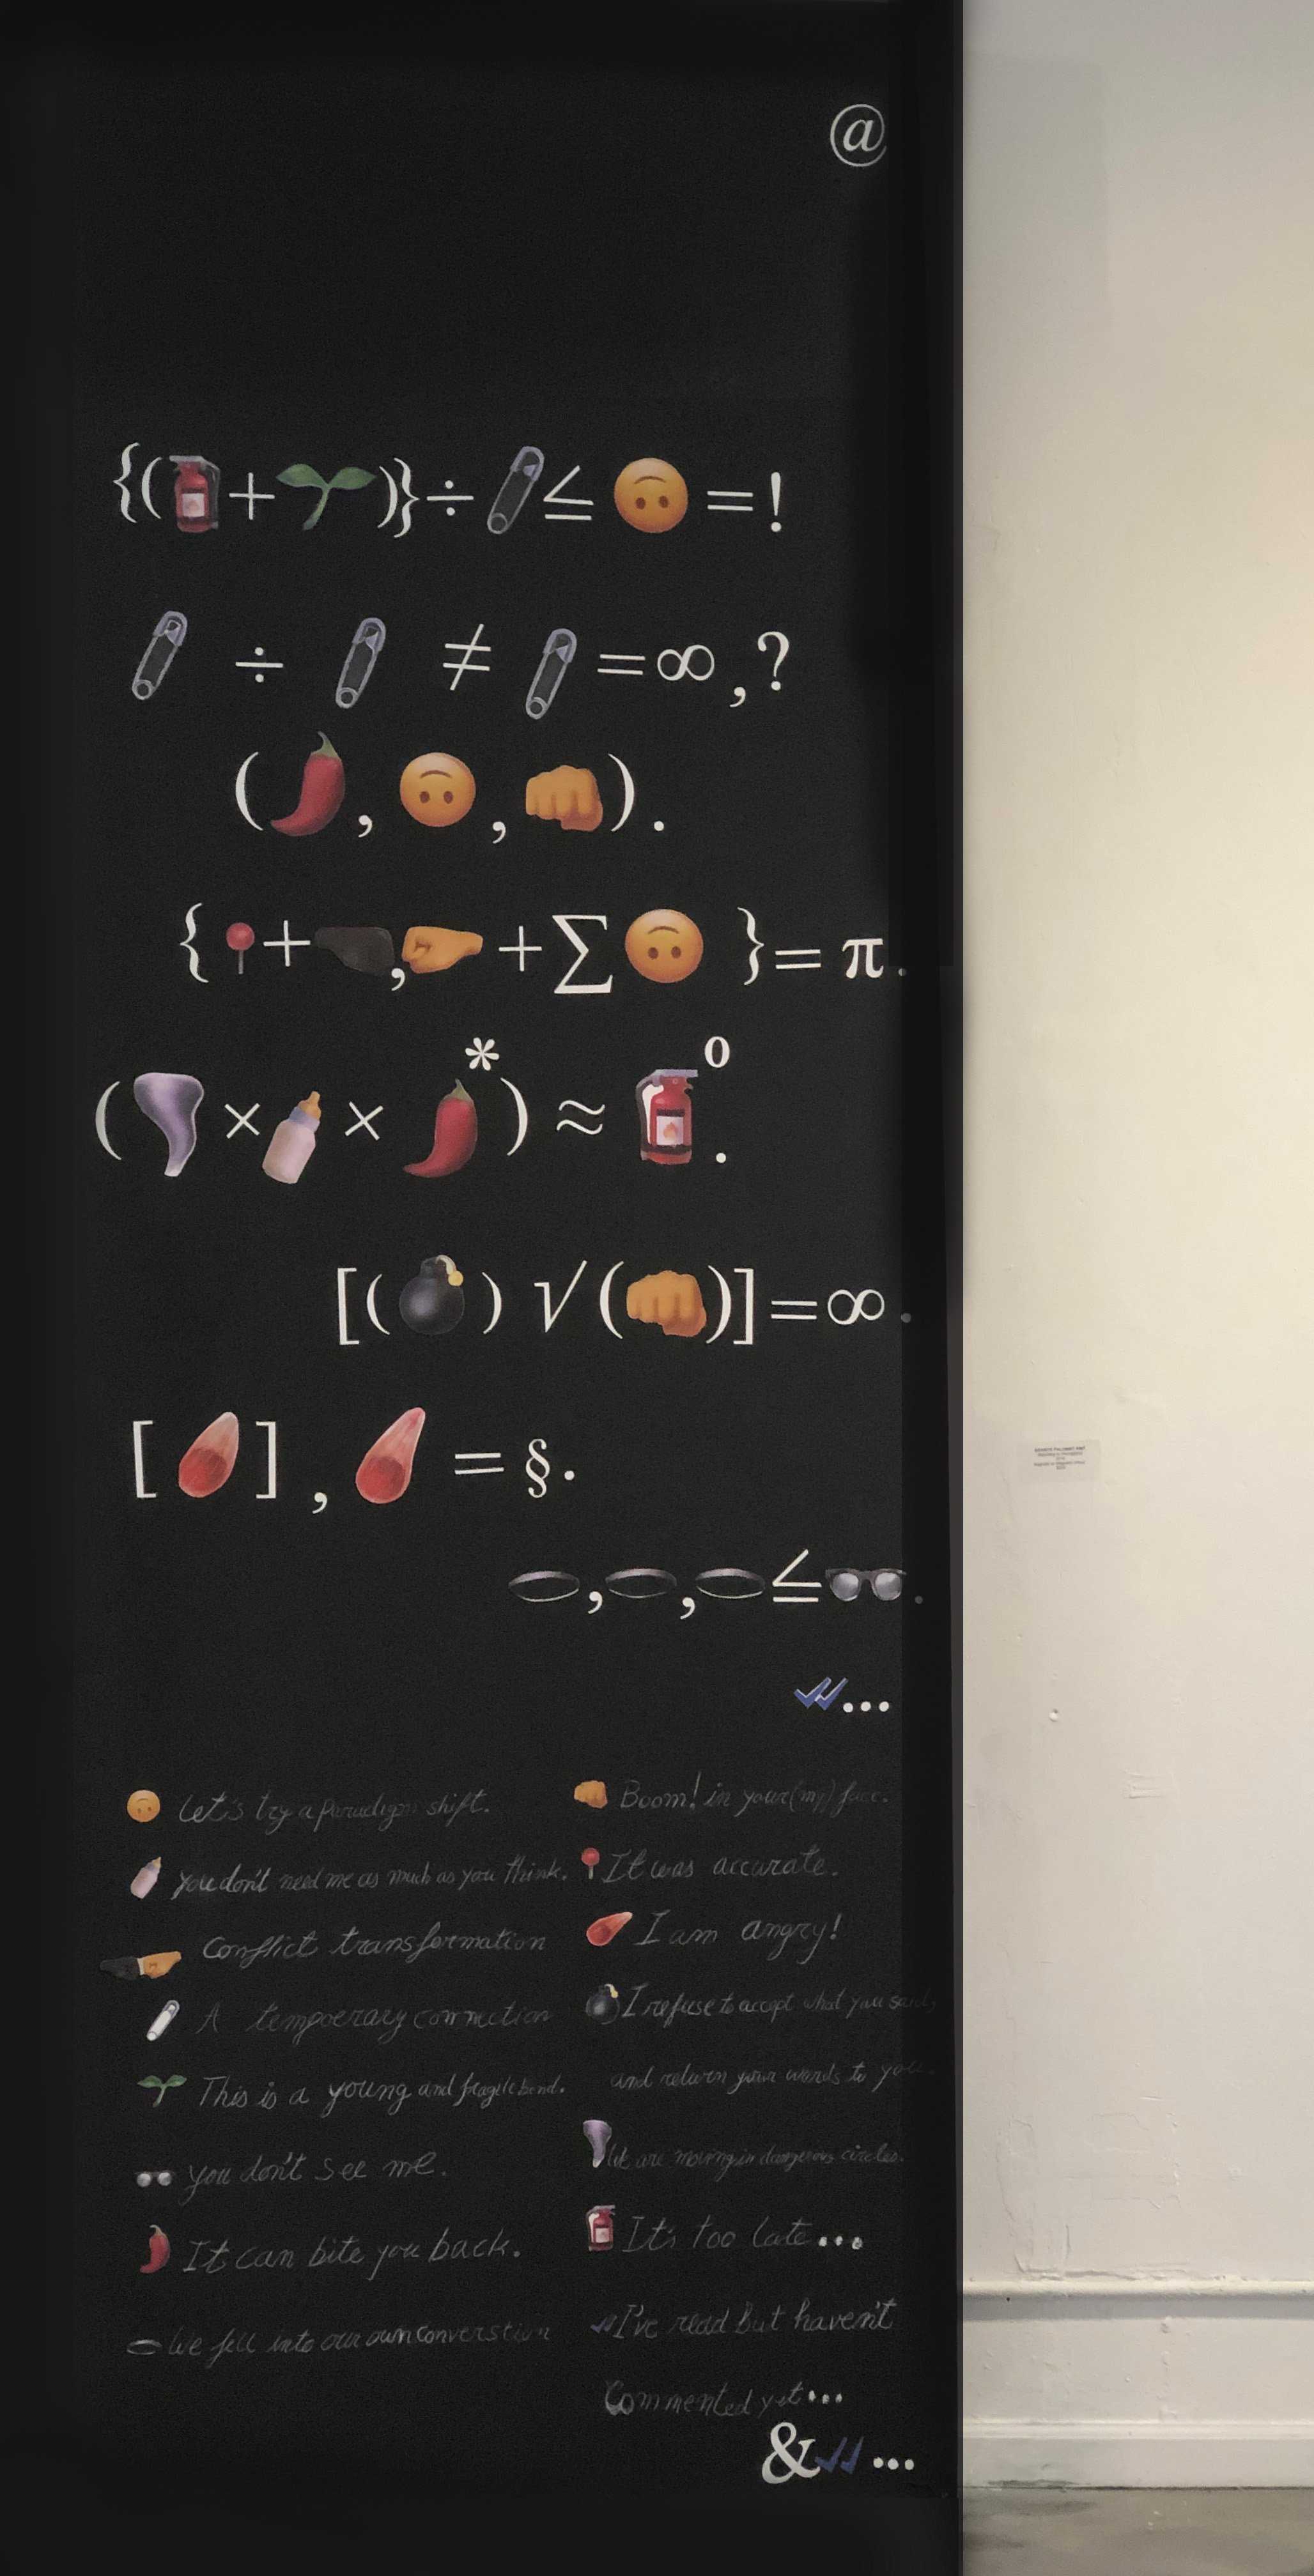 @
{(🧯+🌱)}÷🧷≤🙃=!
🧷 ÷ 🧷 ≠ 🧷=∞,?
(🌶,🙃,👊).
{📍+🤜🏿,🤛+∑🙃 }=π.
(🌪×🍼×🌶*)≈🧯⁰.
[(💣)√(👊)]=∞.
[☄],☄=§.
🕳,🕳,🕳≤🕶.
✓✓...
🙃 Let's try a paradigm shift.
🍼 you don't need me as much as you think.
🤜🏿🤛 Conflict transformation
🧷 A temporary connection
🌱 This is a young and fragile bond.
🕶 you don't see me.
🌶 It can bite you back.
🕳 We fell into our own converstion
👊 Boom! in your(my) face.
📍 It was accurate.
☄ I am angry!
💣 I refuse to accept what you said,
and return your words to you.
🌪 We are moving in dangerous circles.
🧯 It's too late...
✓✓ I've read but haven't
Commented yet...
&✓✓...